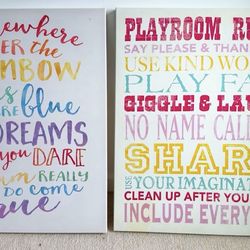 ewhere
er the
mbow
s
re blue
Dreams
you dare
am really
do come
rue
PLAYROOM RU
SAY PLEASE & THAN
USE KIND WO
PLAY FA
GIGGLE & LA
NO NAME CALL
SHAR
USE YOUR IMAGINAT
CLEAN UP AFTER YOU
INCLUDE EVERY